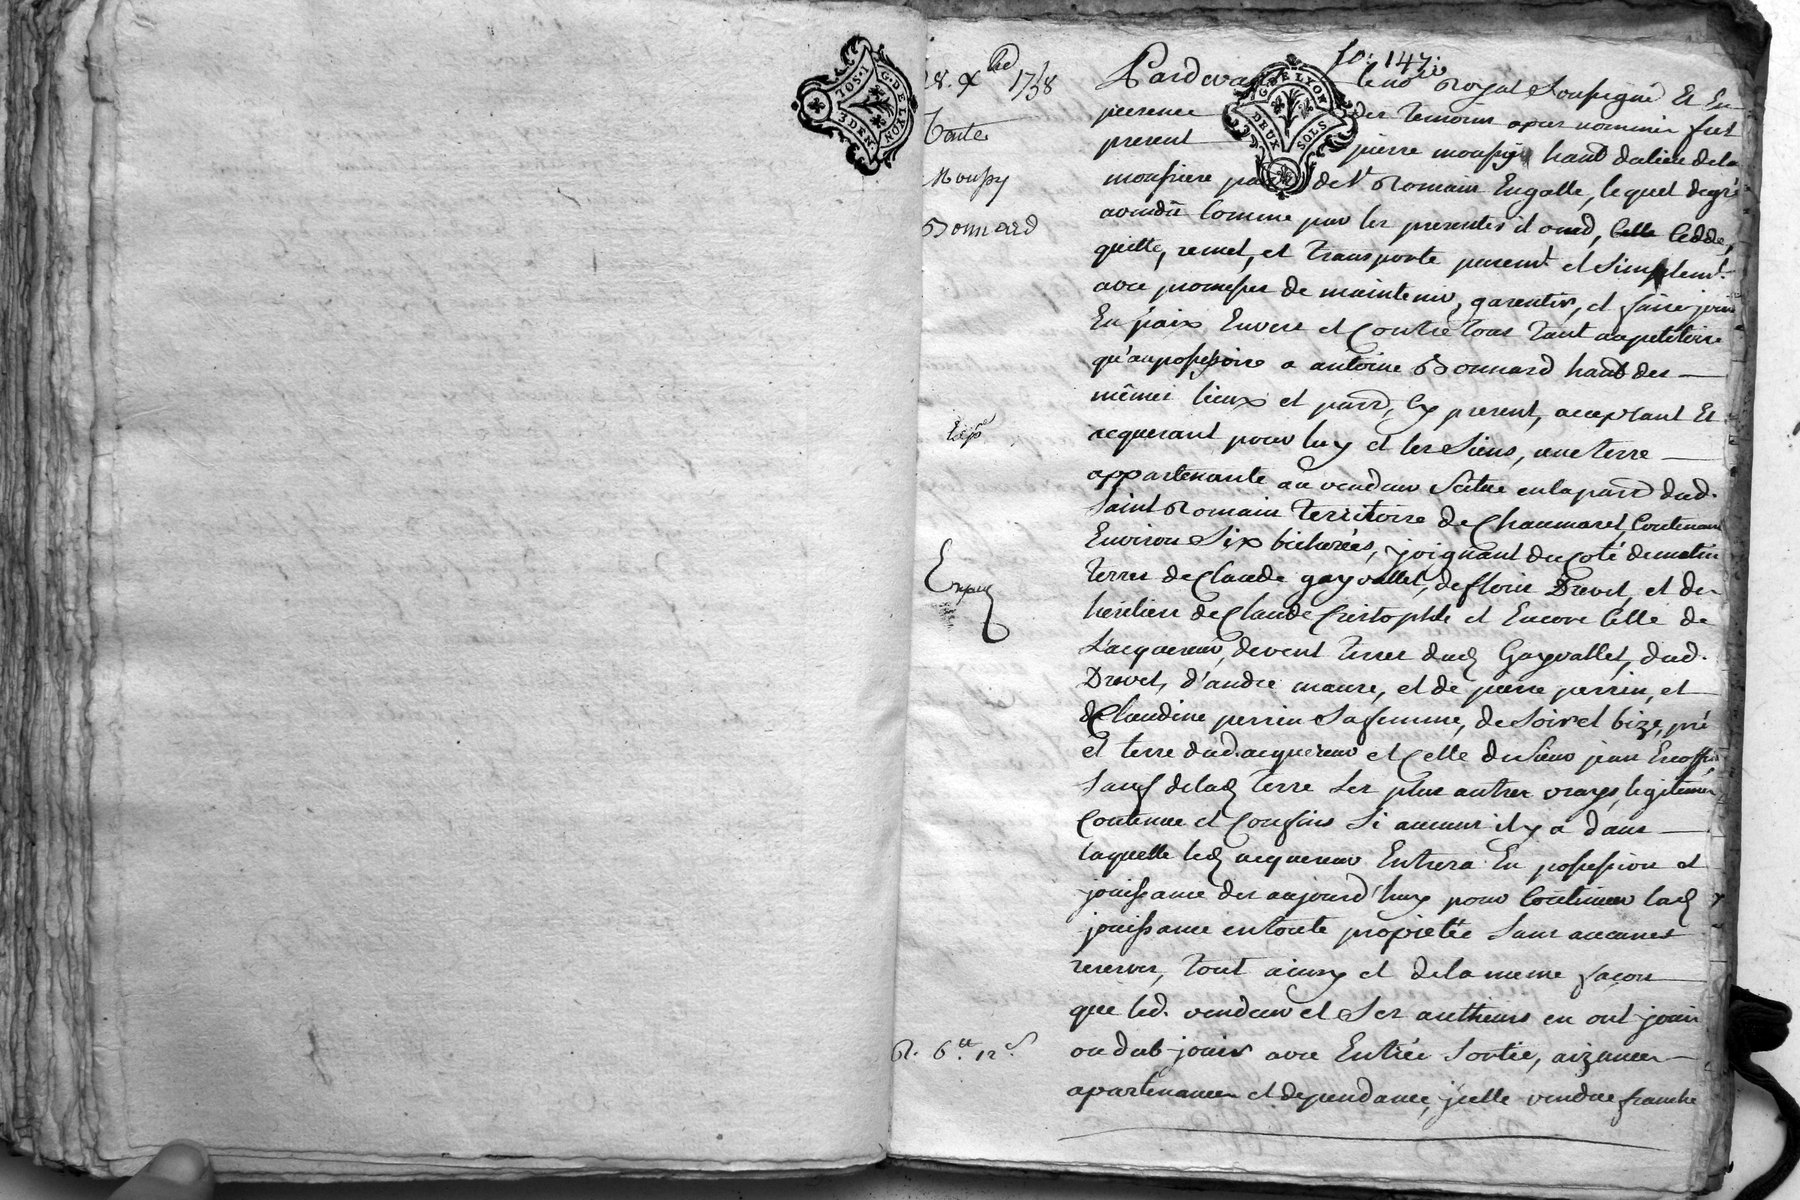 1.SOL.
3 DEN.
G.DE LYON
fo: 147:
28. xbre 1738
Vente
Moussy
Bonnard
Expé
R. 6tt 12s
G.DE LYON
DEUX SOLS
Pardevant le no.re Royal soussigné Et En
presence des Temoins apres nommés fut
present pierre moussy habt. du lieu de la
moussiere parr de St Romain Engalle, lequel de gré
a vendu Comme par les presentes il vend, Cedde,
quitte, remet, et Transporte puremt. et simplemt.
avec promesses de maintenir, garentir, et faire jouir
En paix Envers et Contre Tous Tant au petitoire
qu'au possessoire a antoine Bonnard habt des
mêmes lieux et parr, Cy present, acceptant Et
requerant pour luy et les Siens, une terre
appartenante au vendeur Scitue en la parr dud.
Saint Romain Territoire de Chaumaret, Contenant
Environ Six bicherées, joignant du Coté de matin
Terres de Claude gayvallet, de floris Drevet, et des
héritiers de Claude Cristophle et Encore Celle de
L'acquereur, de vent Terres dud Gayvallet, dud.
Drevet, d'andré maure, et de pierre perrin, et
de Claudine perrin Sa femme, de Soir et bize, pré
et terre dud. acquereur et Celle du Sieur jean Escoffier
Sauf de lad Terre Ses plus autres vrays, legitimes
Contenue et Confins Si aucuns il y a dans
laquelle led acquereur Entrera En possession et
jouissance des aujourd'huy pour Continuer lad
jouissance en toute propriettée Sans aucunes
reserves, Tout ainsy et de la meme façon
que led. vendeur et Ses autheurs en ont joui
ou dub jouir avec Entrée Sortie, aizances
apartenances et dependance, jcelle vendue franche